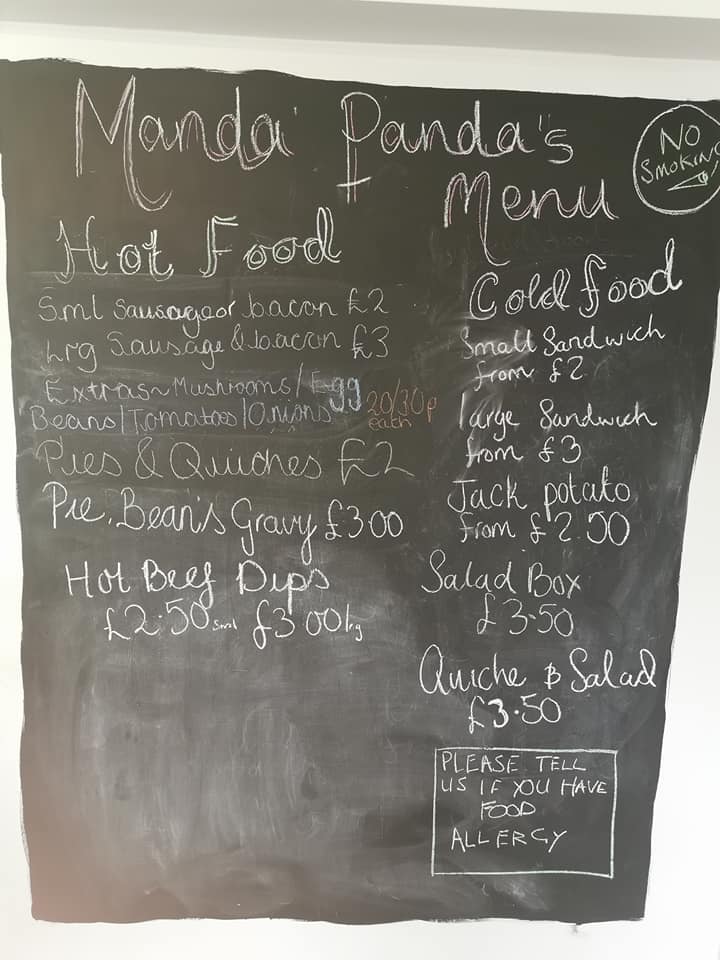 Manda Panda's
Menu
NO
SMOKING
Hot Food
Sml Sausage or bacon £2
Lrg Sausage & bacon £3
Extras~ Mushrooms/Egg
Beans/Tomatoes/Onions 20/30p
each
Pies & Quiches £2
Pie, Bean's Gravy £3 00
Hot Beef Dips
£2.50 sml £3 00 lrg
Cold food
Small Sandwich
from £2
large Sandwich
from £3
Jack potato
from £2.50
Salad Box
£3.50
Quiche & Salad
£3.50
PLEASE TELL
US IF YOU HAVE
FOOD
ALLERGY